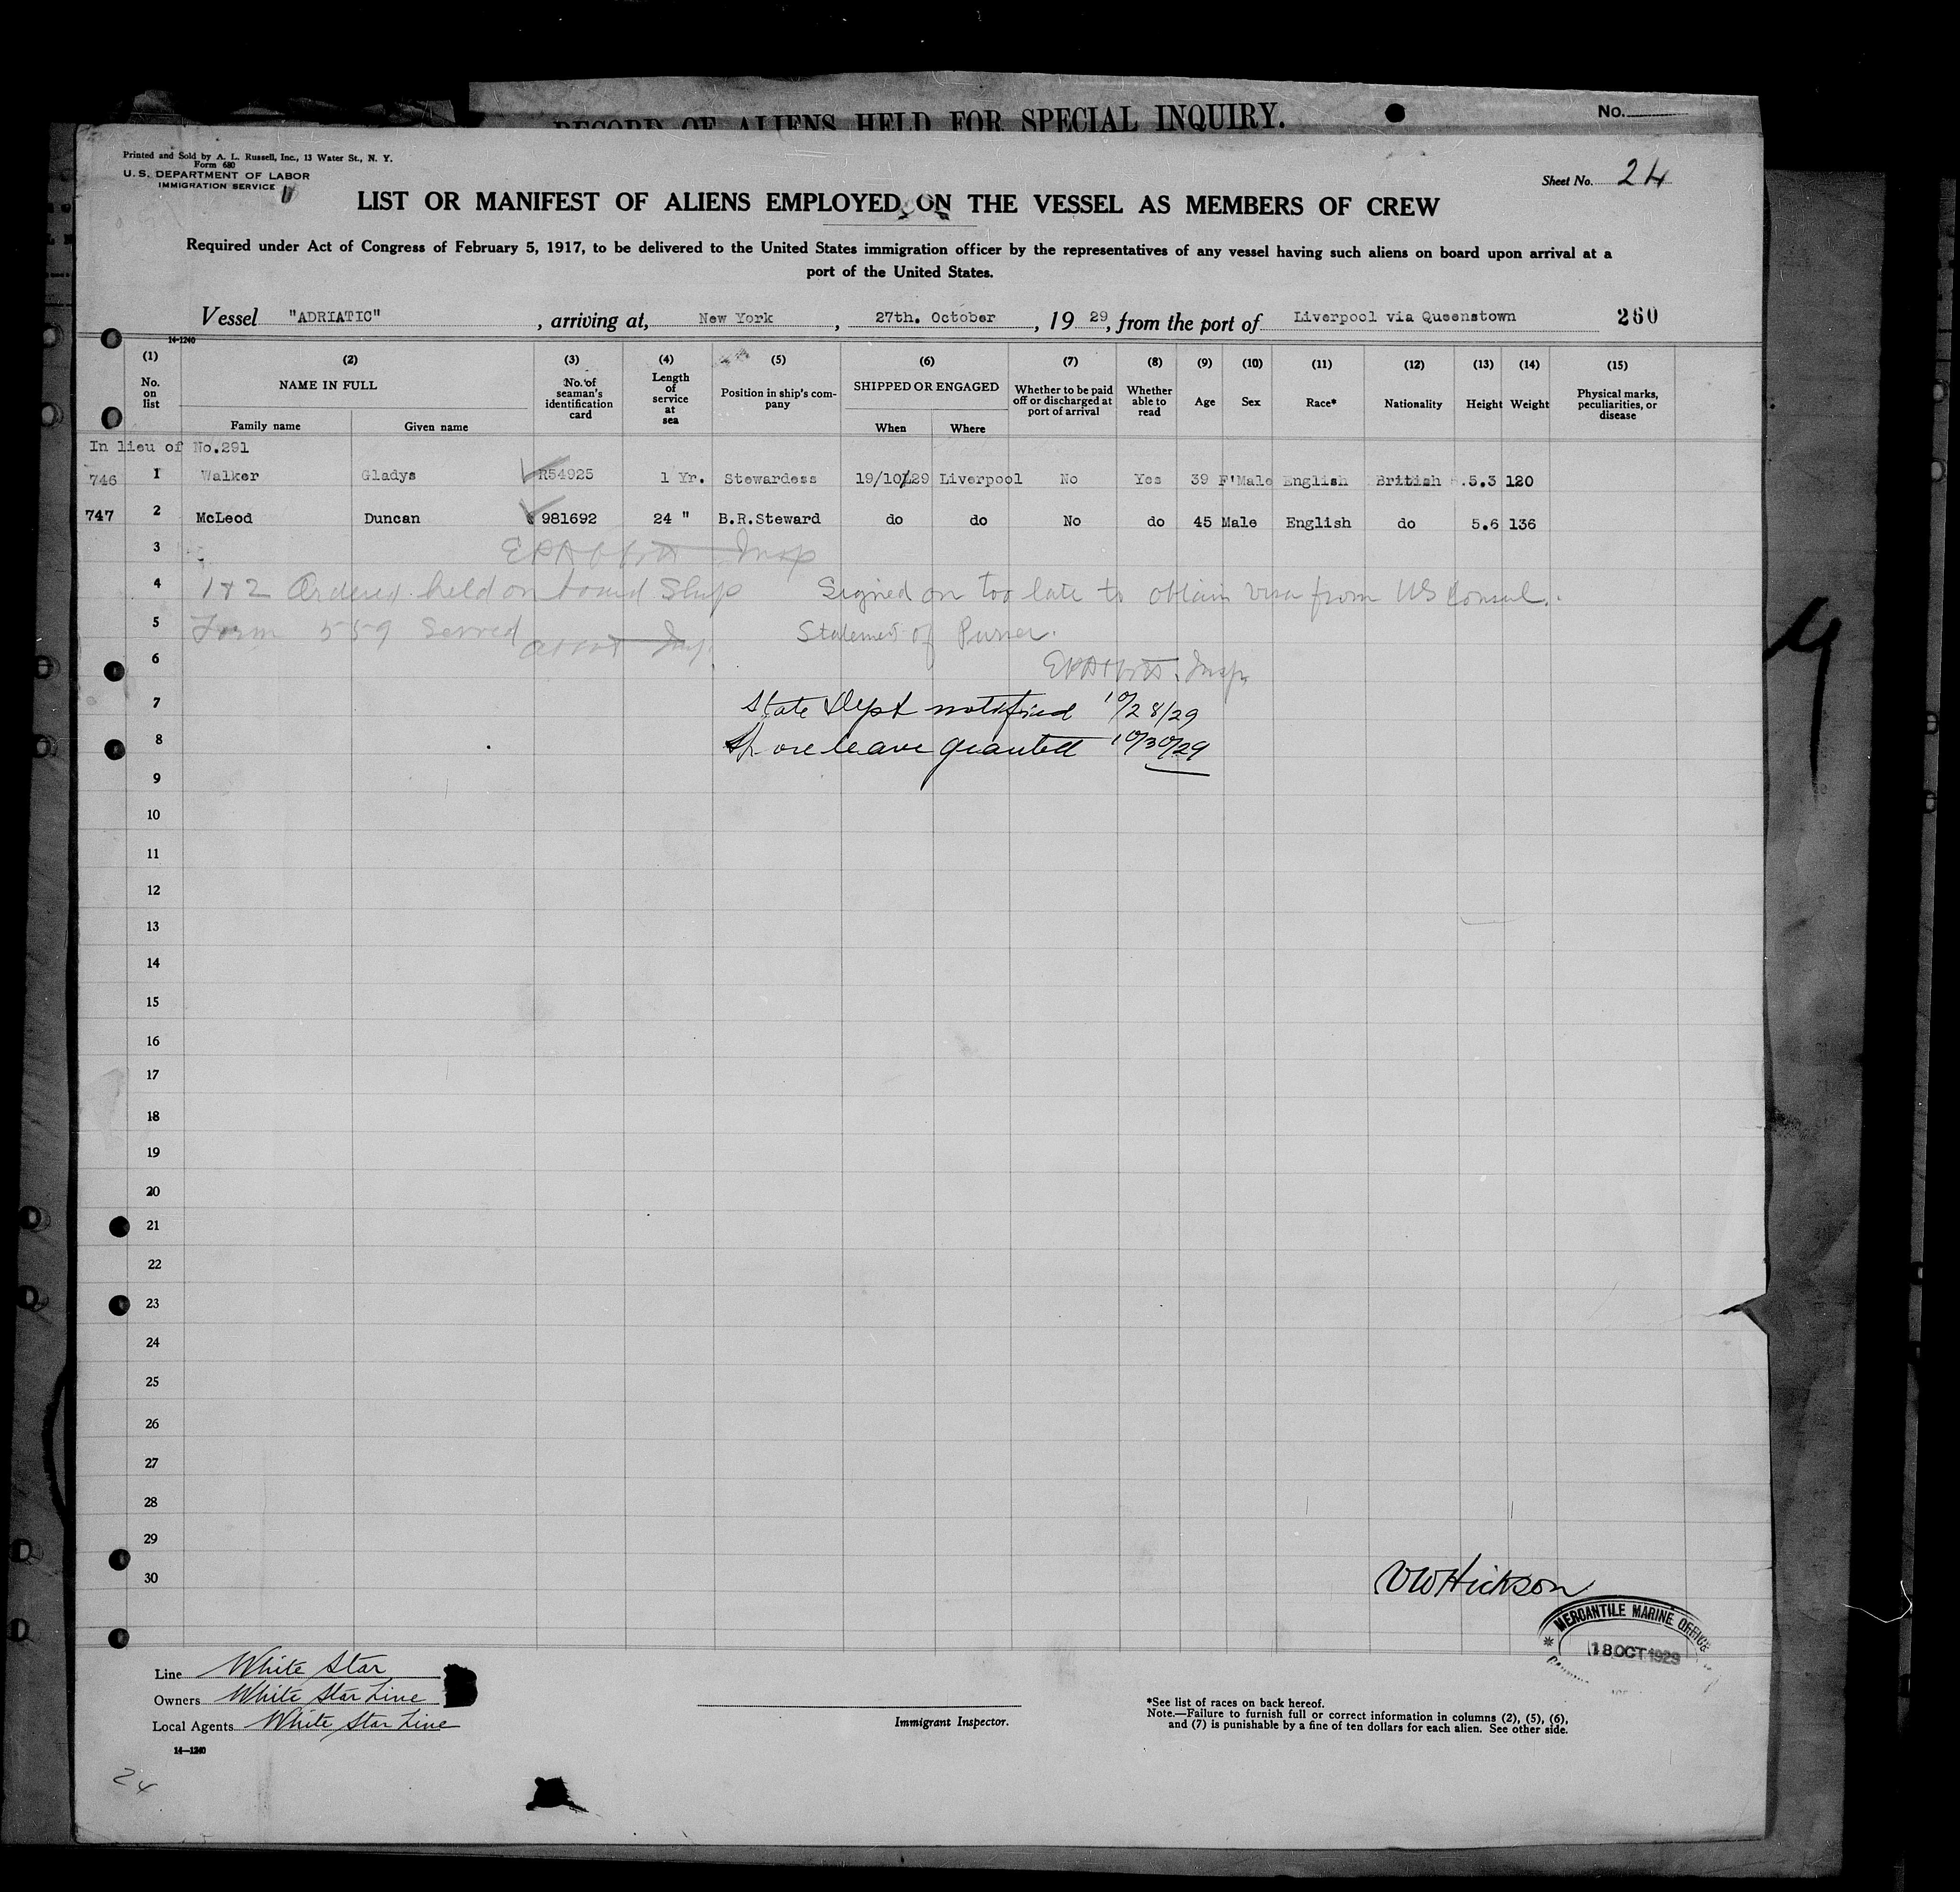 RECORD OF ALIENS HELD FOR SPECIAL INQUIRY.
No.
Printed and Sold by A. L. Russell, Inc., 13 Water St., N. Y.
Form 680
U. S. DEPARTMENT OF LABOR
IMMIGRATION SERVICE
Sheet No. 24
LIST OR MANIFEST OF ALIENS EMPLOYED ON THE VESSEL AS MEMBERS OF CREW
Required under Act of Congress of February 5, 1917, to be delivered to the United States immigration officer by the representatives of any vessel having such aliens on board upon arrival at a
port of the United States.
Vessel "ADRIATIC", arriving at, New York, 27th. October, 1929, from the port of Liverpool via Queenstown 260
14-1240
(1) (2) (3) (4) (5) (6) (7) (8) (9) (10) (11) (12) (13) (14) (15)
No. on list NAME IN FULL Family name Given name No. of seaman's identification card Length of service at sea Position in ship's company SHIPPED OR ENGAGED When Where Whether to be paid off or discharged at port of arrival Whether able to read Age Sex Race* Nationality Height Weight Physical marks, peculiarities, or disease
In lieu of No.291
746 1 Walker Gladys R54925 1 Yr. Stewardess 19/10/29 Liverpool No Yes 39 F'Male English British 5.3 120
747 2 McLeod Duncan 981692 24 " B.R.Steward do do No do 45 Male English do 5.6 136
3 Insp
4 1 & 2 Ordered held on board Ship Signed on too late to obtain visa from US Consul.
5 Form 559 Served Insp. Statement of Purser.
6 Insp.
7 State Dept notified 10/28/29
8 Shore leave granted 10/30/29
9
10
11
12
13
14
15
16
17
18
19
20
21
22
23
24
25
26
27
28
29
30
VW Hickson
MERCANTILE MARINE OFFICE
18 OCT 1929
Line White Star
Owners White Star Line
Local Agents White Star Line
14—1240
Immigrant Inspector.
*See list of races on back hereof.
Note.—Failure to furnish full or correct information in columns (2), (5), (6),
and (7) is punishable by a fine of ten dollars for each alien. See other side.
24